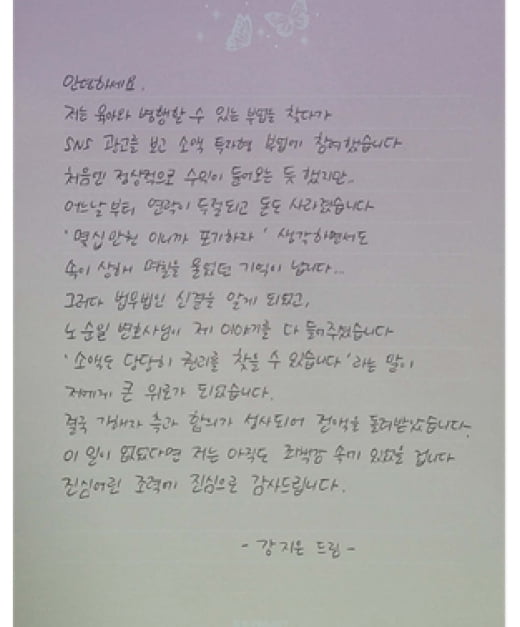 안녕하세요.
저는 육아와 병행할 수 있는 부업을 찾다가
SNS 광고를 보고 소액 투자형 부업에 참여했습니다
처음엔 정상적으로 수익이 들어오는 듯 했지만..
어느날부터 연락이 두절되고 돈도 사라졌습니다
'몇십만원 이니까 포기하라' 생각하면서도
속이 상해 며칠을 울었던 기억이 납니다...
그러다 법무법인 신결을 알게 되었고,
노순일 변호사님이 제 이야기를 다 들어주셨습니다
'소액도 당당히 권리를 찾을 수 있습니다'라는 말이
저에게 큰 위로가 되었습니다.
결국 가해자 측과 합의가 성사되어 전액을 돌려받았습니다.
이 일이 없었다면 저는 아직도 죄책감 속에 있었을 겁니다
진심어린 조력에 진심으로 감사드립니다.
- 강지은 드림 -